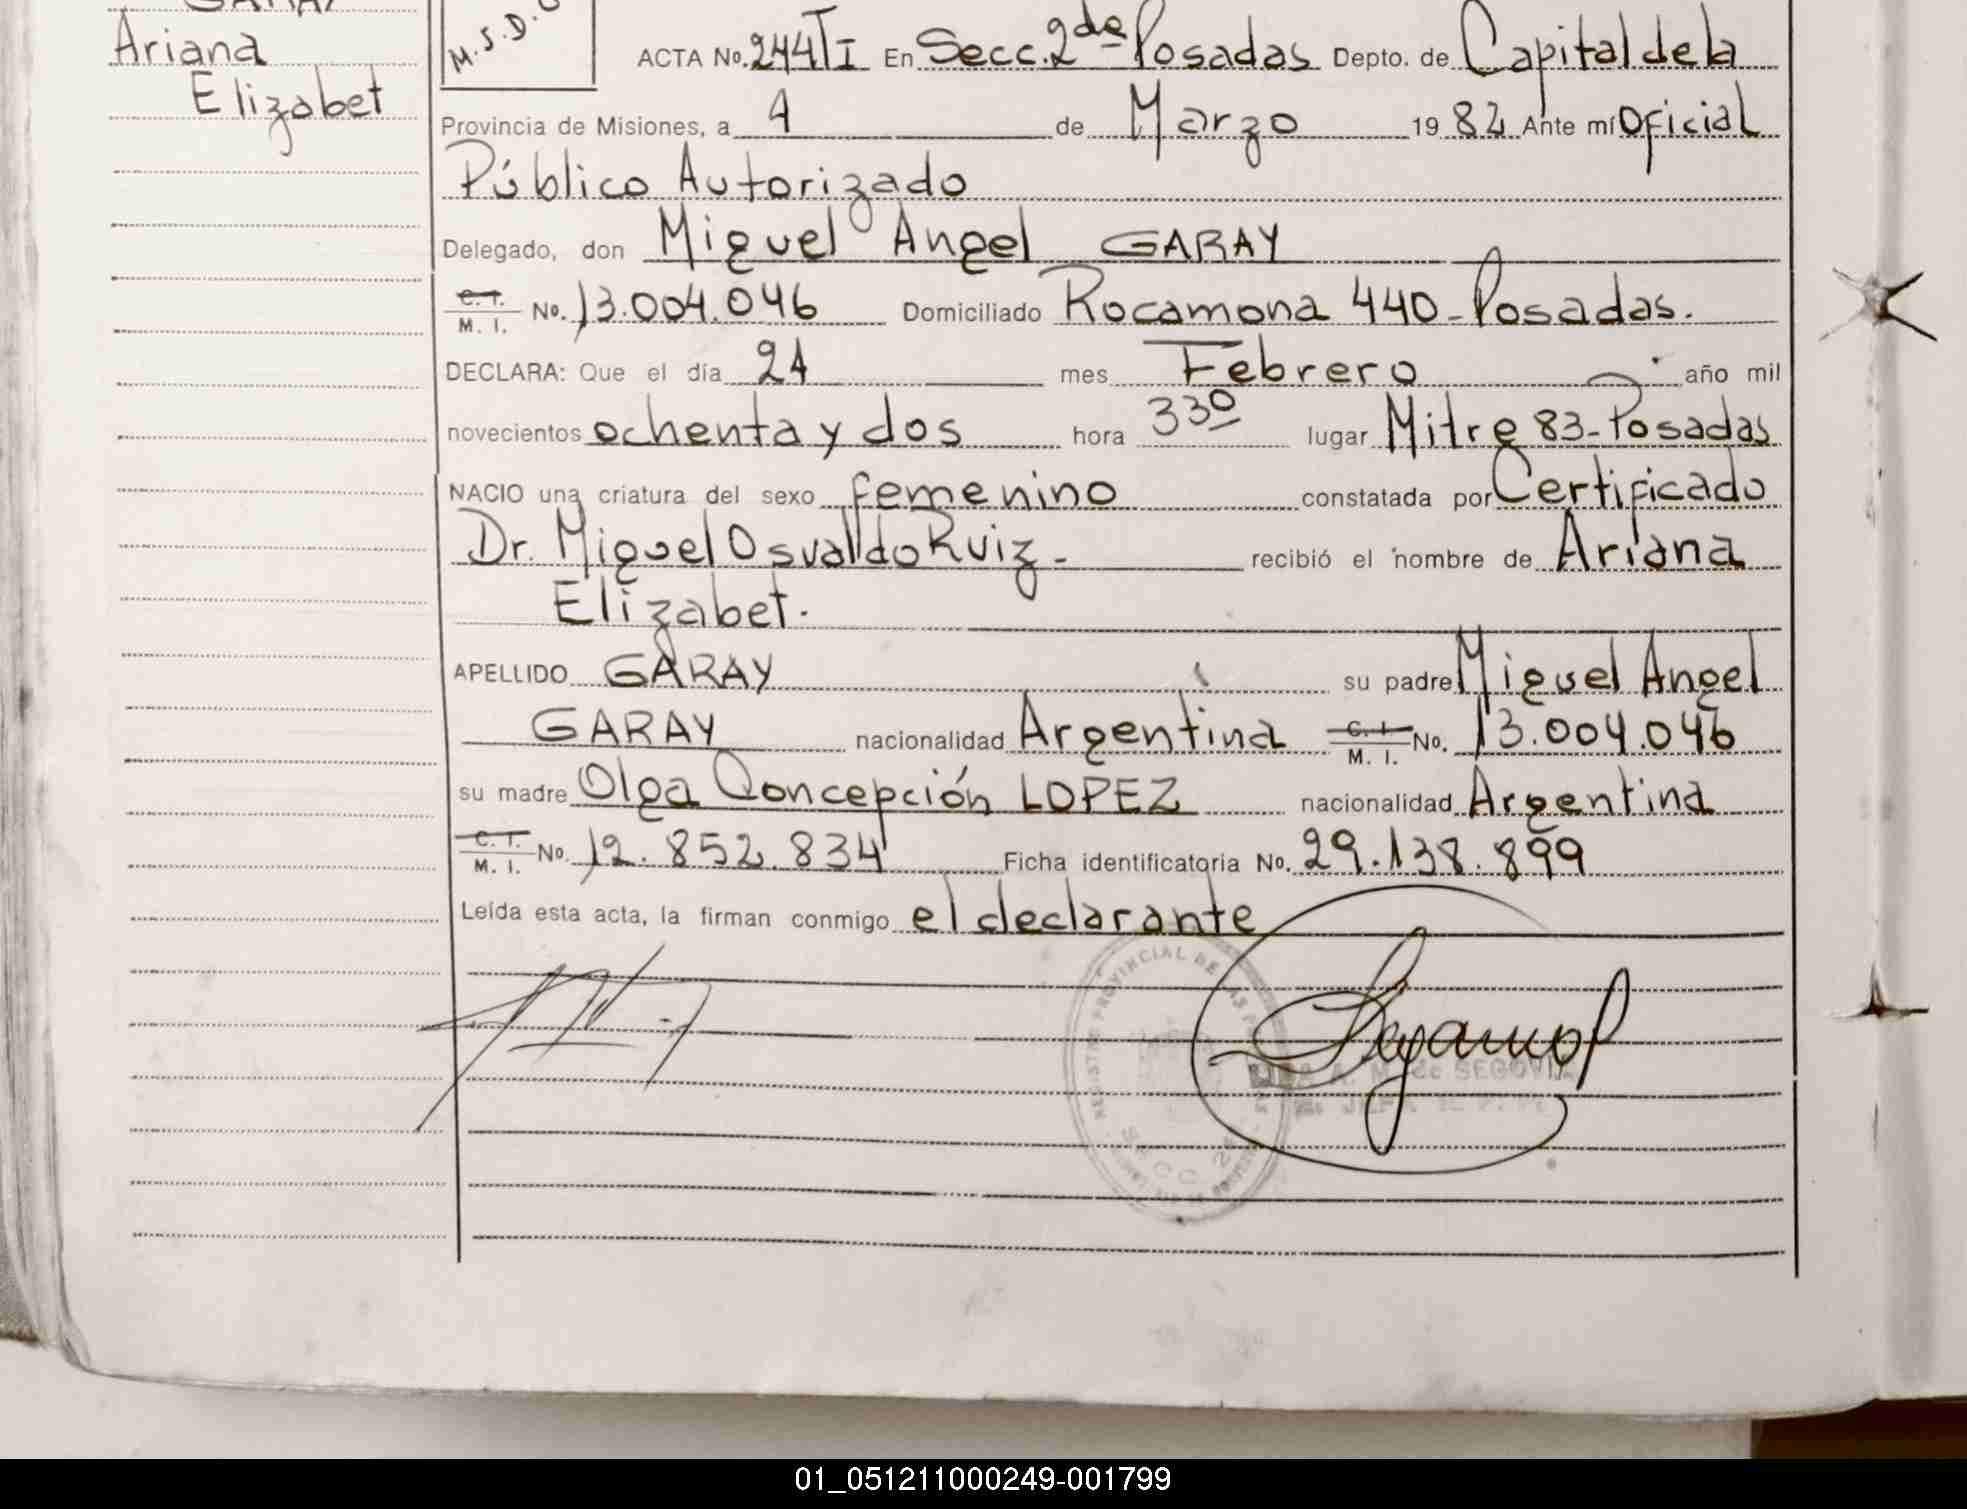 GARAY
Ariana
Elizabet
M.S.D.
ACTA No. 244TI En Secc. 2da Posadas Depto. de Capital de la
Provincia de Misiones, a 4 de Marzo 1982 Ante mí Oficial
Público Autorizado
Delegado, don Miguel Angel GARAY
C.I. M. I. No. 13.004.046 Domiciliado Rocamona 440-Posadas.
DECLARA: Que el día 24 mes Febrero año mil
novecientos ochenta y dos hora 330 lugar Mitre 83-Posadas
NACIO una criatura del sexo femenino constatada por Certificado
Dr. Miguel Osvaldo Ruiz- recibió el nombre de Ariana
Elizabet.
APELLIDO GARAY su padre Miguel Angel
GARAY nacionalidad Argentina C.I. M. I. No. 13.004.046
su madre Olga Concepción LOPEZ nacionalidad Argentina
C.I. M. I. No. 12.852.834 Ficha identificatoria No. 29.138.899
Leída esta acta, la firman conmigo el declarante
REGISTRO PROVINCIAL DE LAS
SECC. 2a
A. M. de SEGOVIA
01_051211000249-001799